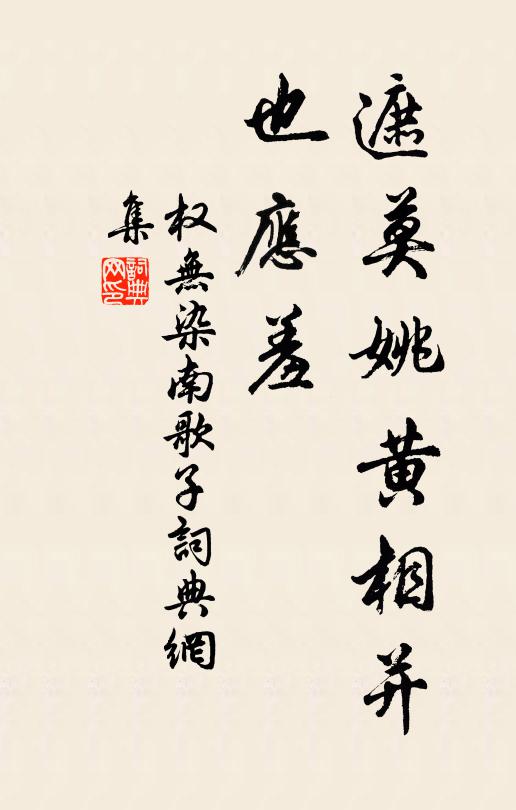 遮莫姚黄相并
也應羞
权無染南歌子詞典網
集
詞典
网印